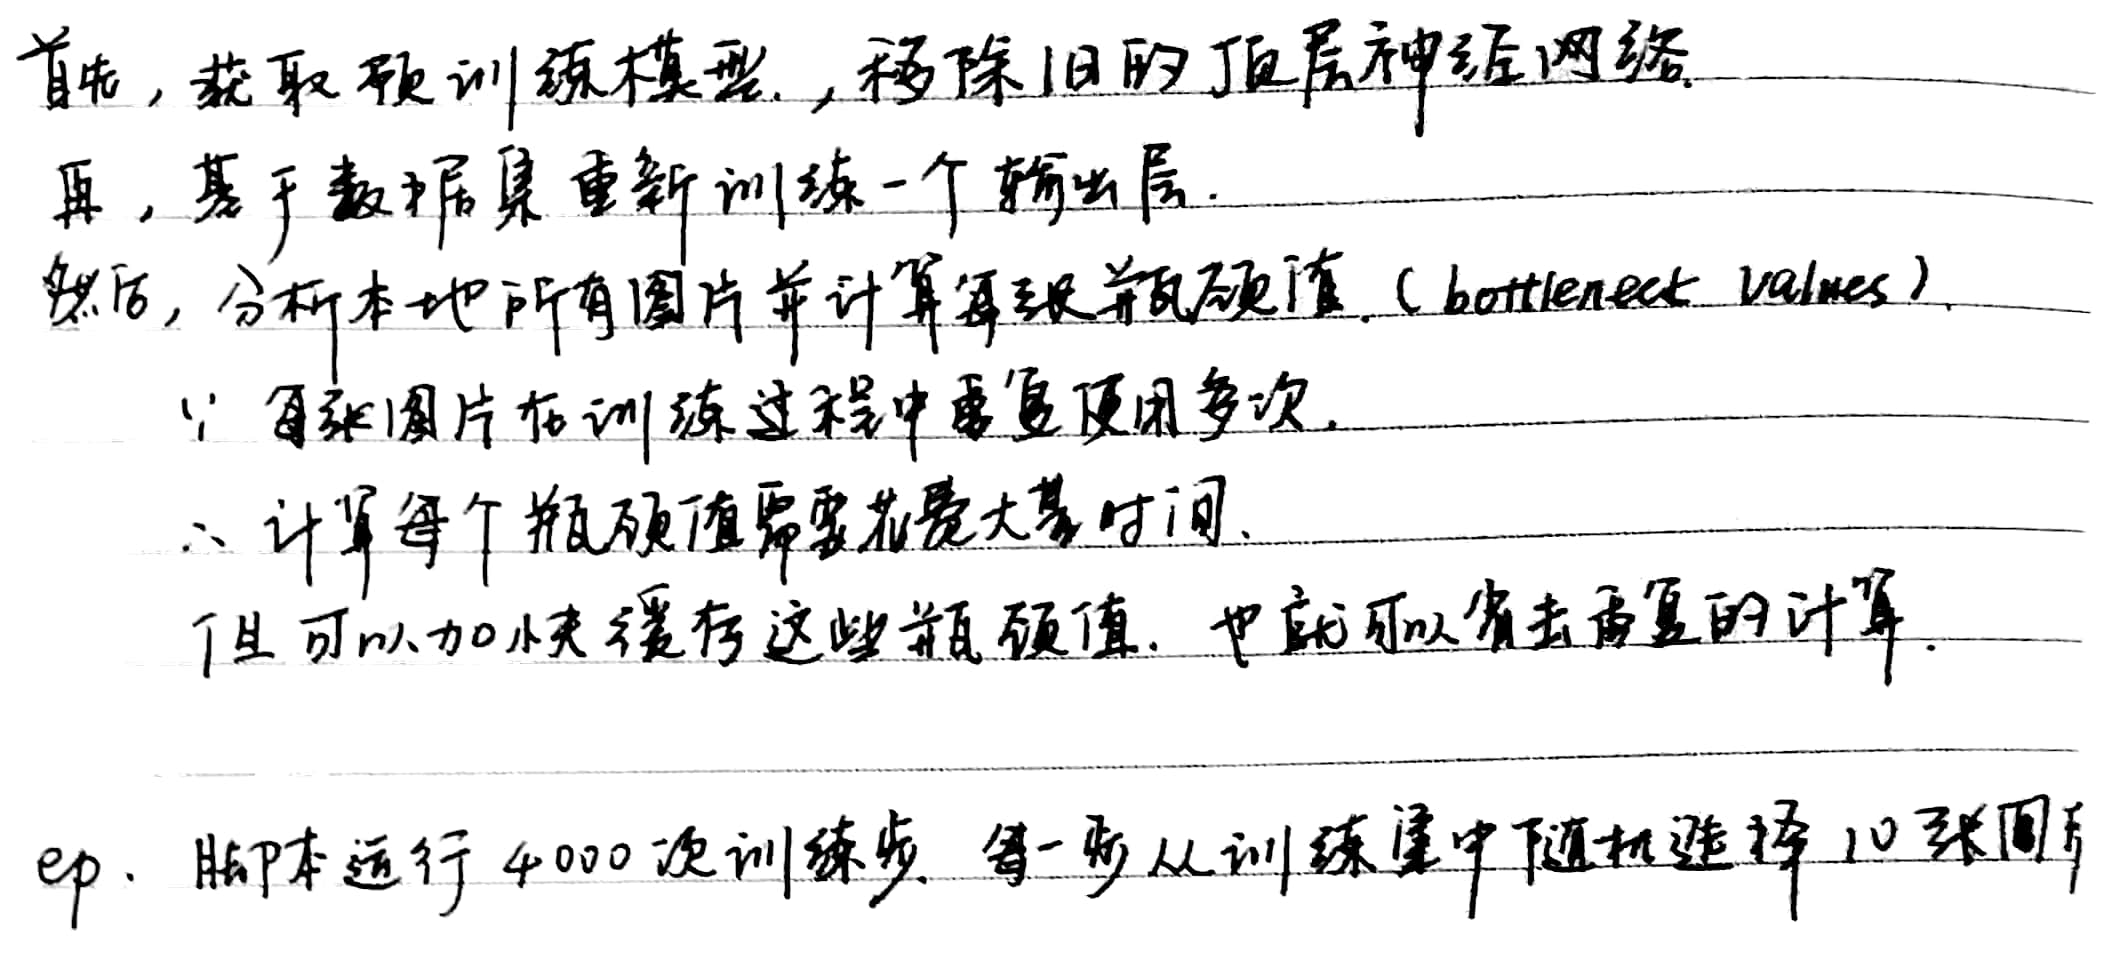 首先，获取预训练模型.，移除旧的顶层神经网络.
再，基于数据集重新训练一个输出层.
然后，分析本地所有图片并计算每张瓶颈值.（bottleneck values）.
∵ 每张图片在训练过程中重复使用多次.
∴ 计算每个瓶颈值需要花费大量时间.
但可以加快缓存这些瓶颈值. 也就可以省去重复的计算.
ep. 脚本运行4000次训练步. 每一步从训练集中随机选择10张图片